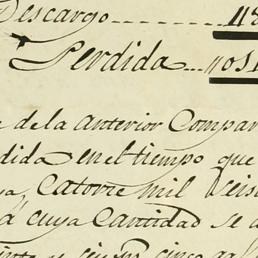 Descargo
Perdida
de la anterior Compar
dida en el tiempo que
ya, Catorze mil Seis
á cuya Cantidad se a
cinco